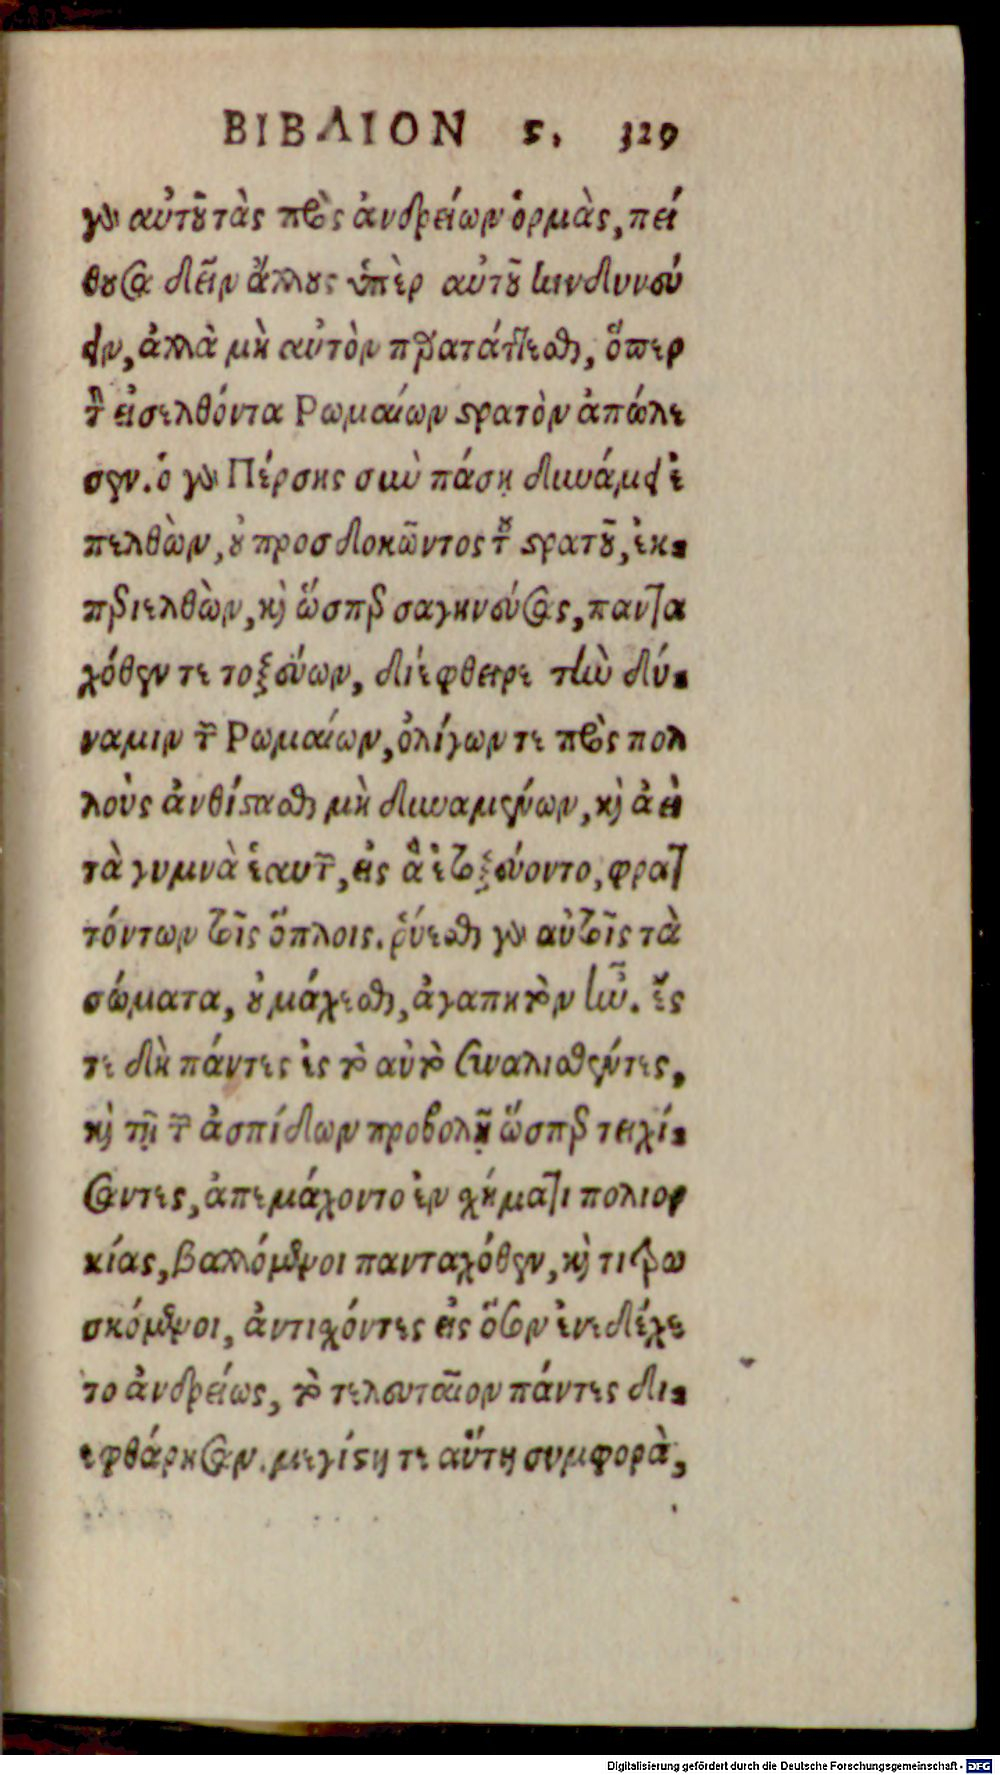 ΒΙΒΛΙΟΝ ϛ. 329
γυναικὸς αὐτοῦ τὰς πρὸς ἀνδρείων ὁρμὰς, πεί
θουσα δεῖν ἄλλους ὑπὲρ αὐτοῦ κινδυνεύ
ειν, ἀλλὰ μὴ αὐτὸν παρατάττεσθαι, ὅπερ
τὸν εἰσελθόντα Ρωμαίων στρατὸν ἀπώλε
σεν. ὁ γὰρ Πέρσης σὺν πάσῃ δυνάμει ἐ
πελθὼν, οὐ προσδοκῶντος τοῦ στρατοῦ, ἐκ-
περιελθὼν, καὶ ὥσπερ σαγηνεύσας, παντα
χόθεν τε τοξεύων, διέφθειρε τὴν δύ-
ναμιν τῶν Ρωμαίων, ὀλίγων τε πρὸς πολ
λοὺς ἀνθίστασθαι μὴ δυναμένων, καὶ ἀεὶ
τὰ γυμνὰ ἑαυτῶν, εἰς ἃ ἐτοξεύοντο, φρατ
τόντων τοῖς ὅπλοις. ῥύεσθαι γὰρ αὐτοῖς τὰ
σώματα, οὐ μάχεσθαι, ἀγαπητὸν ἦν. ἔς
τε δὴ πάντες ἐς τὸ αὐτὸ συναλισθέντες,
καὶ τῇ τῶν ἀσπίδων προβολῇ ὥσπερ τειχί-
σαντες, ἀπεμάχοντο ἐν σχήματι πολιορ
κίας, βαλλόμενοι πανταχόθεν, καὶ τιτρω
σκόμενοι, ἀντισχόντες εἰς ὅσον ἐνεδέχε
το ἀνδρείως, τὸ τελευταῖον πάντες δι-
εφθάρησαν. μεγίστη τε αὕτη συμφορὰ,
Digitalisierung gefördert durch die Deutsche Forschungsgemeinschaft - DFG